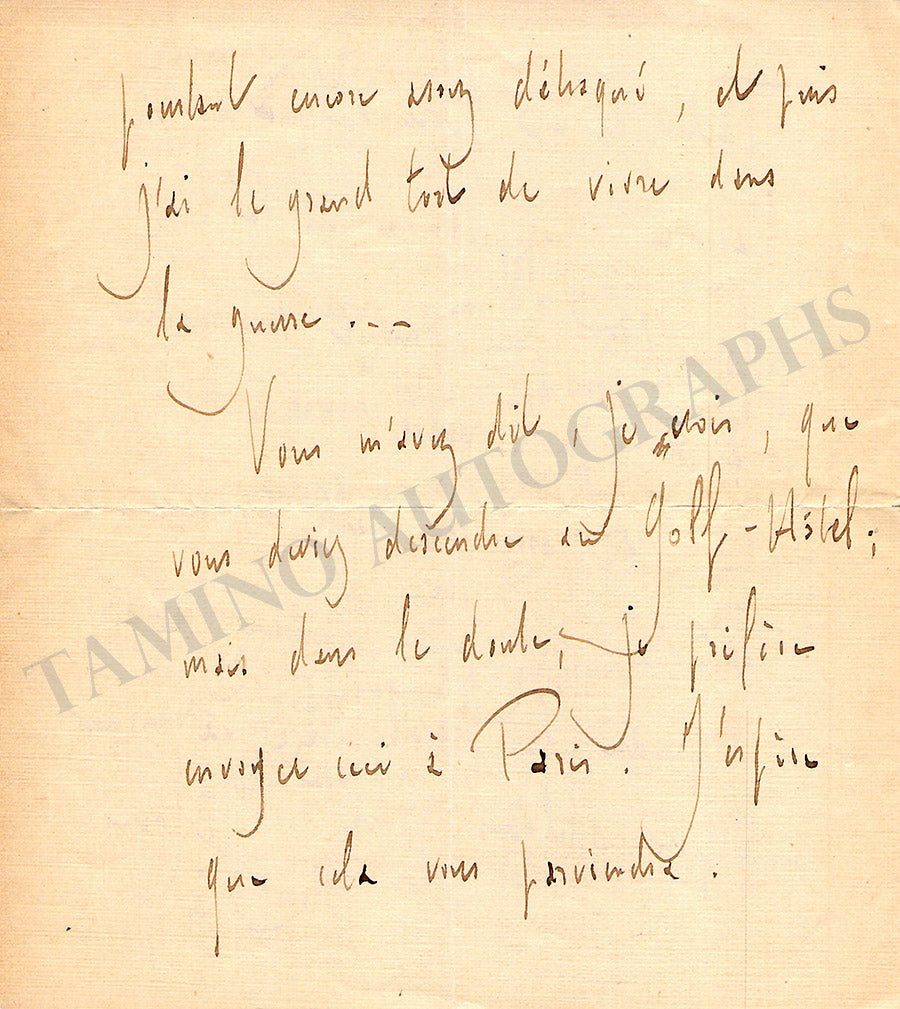 pourtant encore assez détraqué, et puis
j'ai le grand tort de vivre dans
la guerre ...
Vous m'avez dit, je crois, que
vous deviez descendre au Golf-Hôtel ;
mais dans le doute, je préfère
envoyer ceci à Paris. J'espère
que cela vous parviendra.
TAMINO AUTOGRAPHS